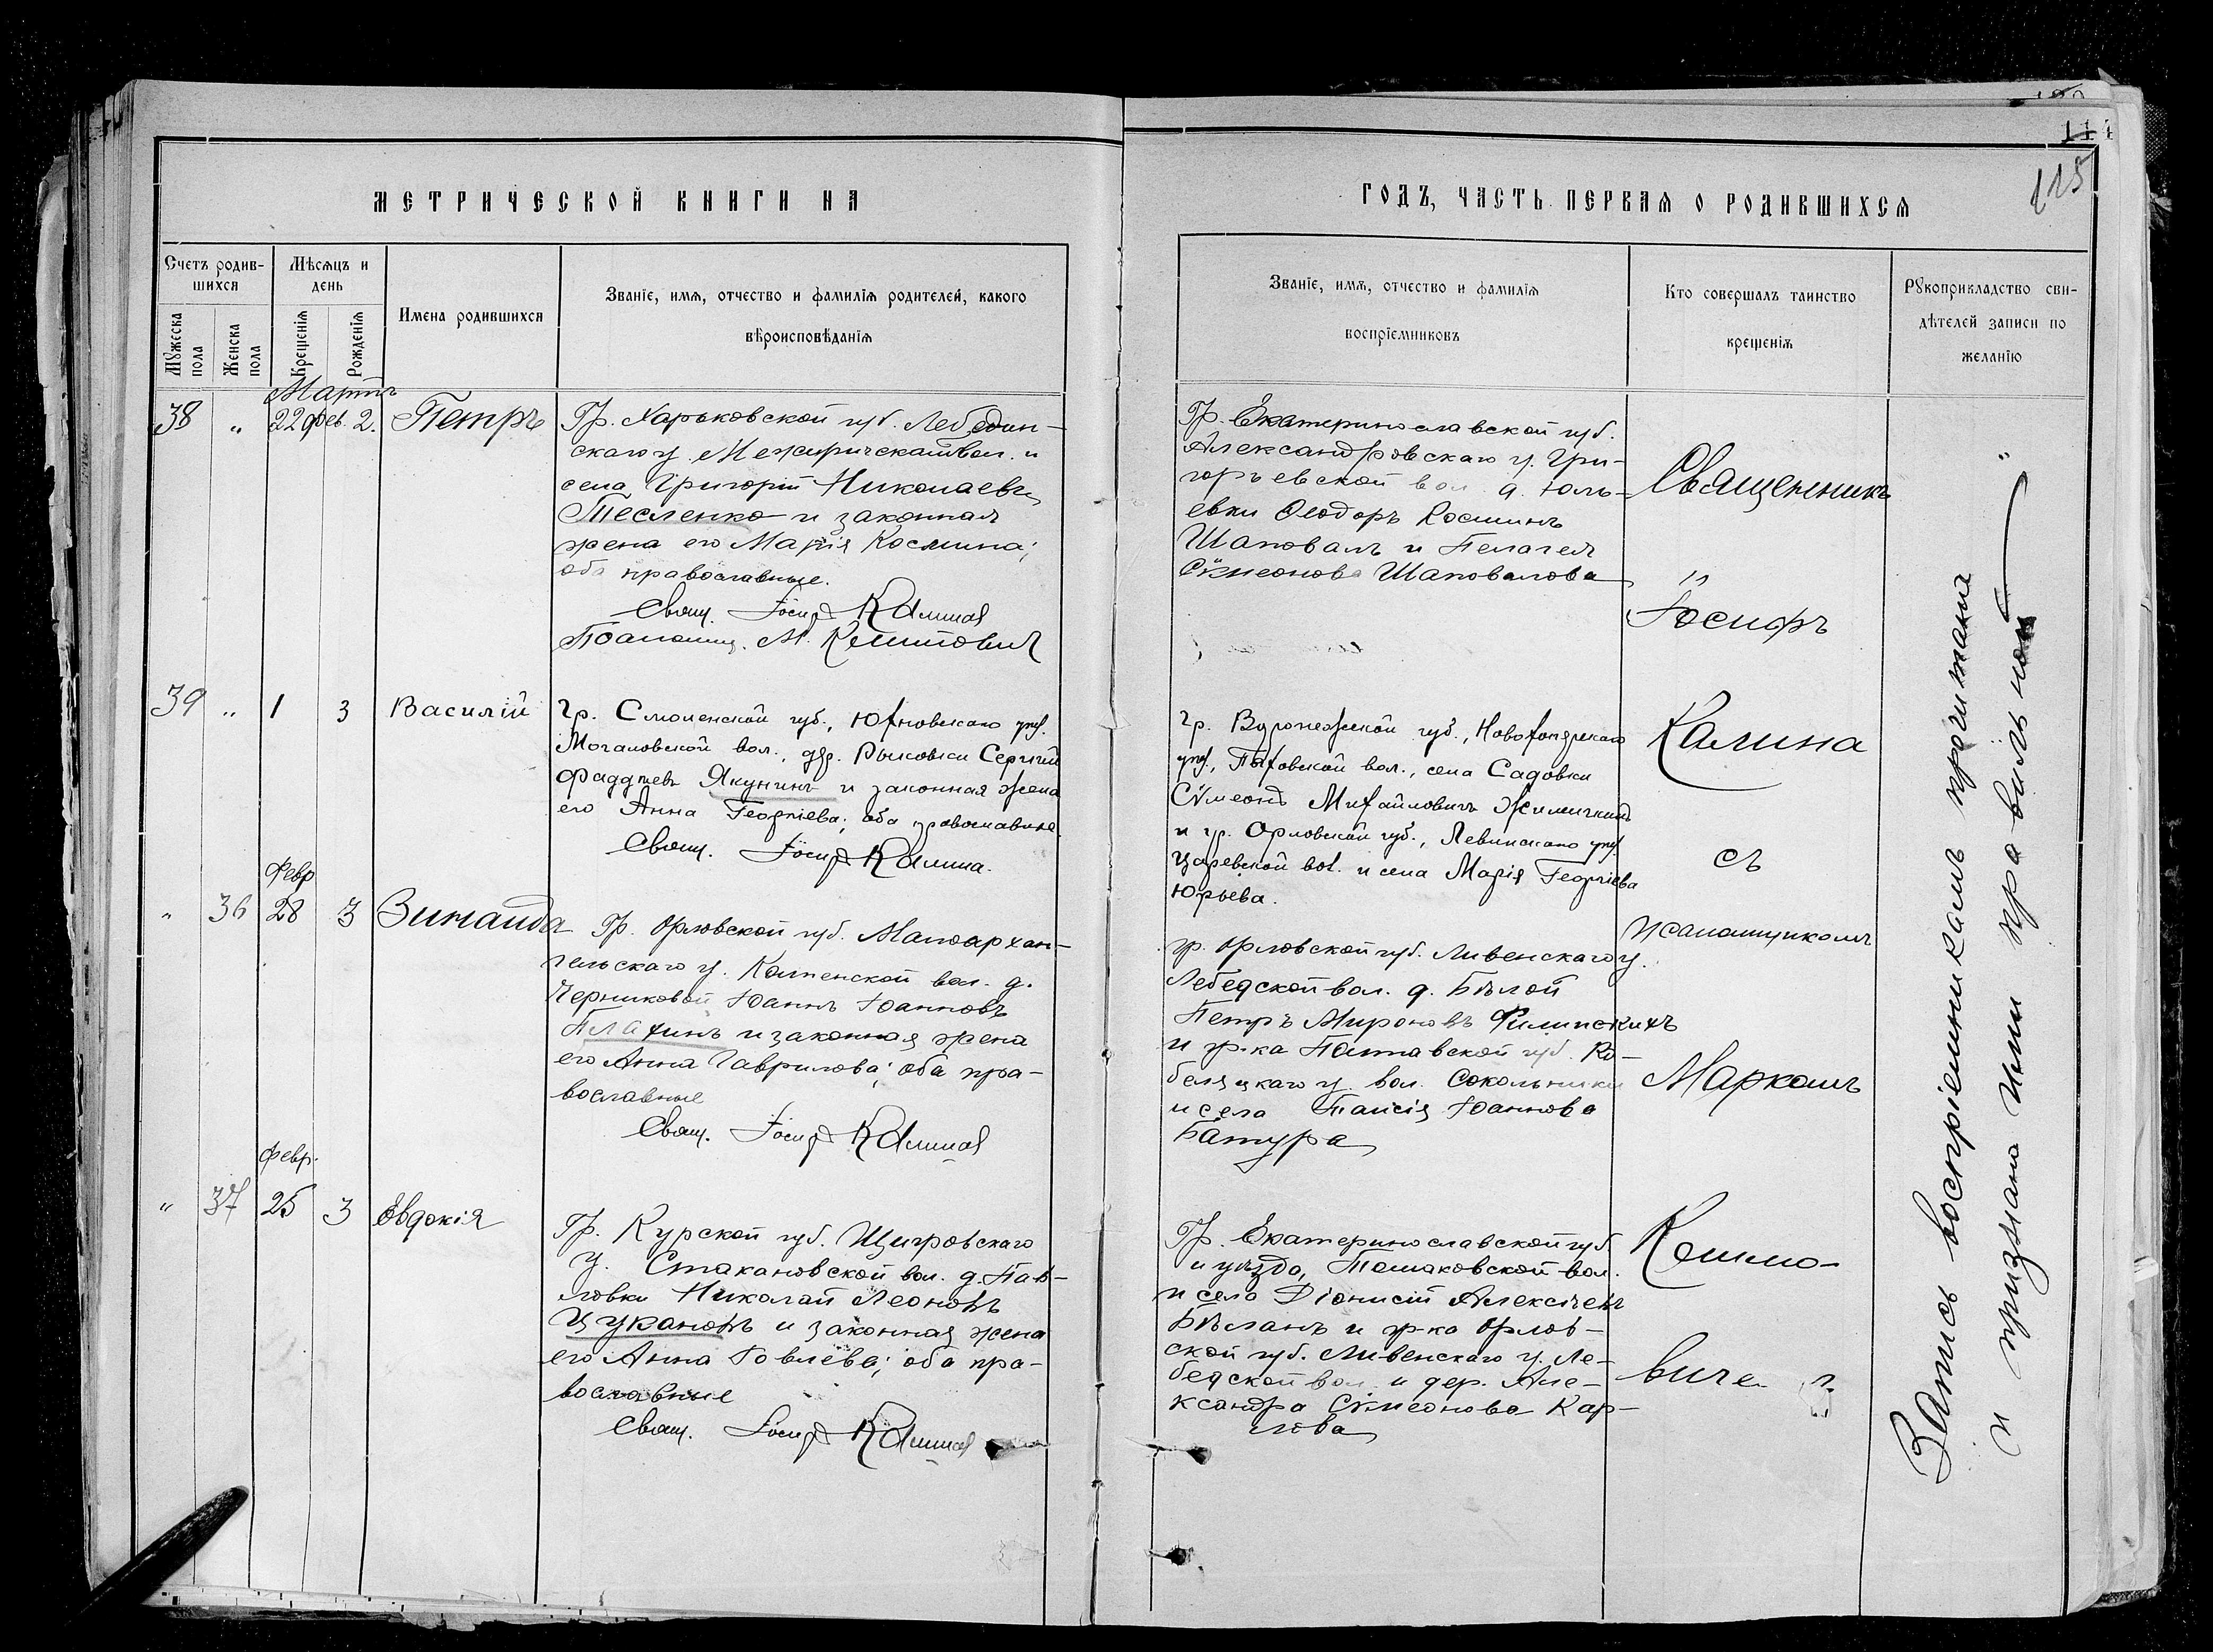 114
115
МЕТРИЧЕСКОЙ КНИГИ НА
ГОДЪ, ЧАСТЬ ПЕРВАЯ О РОДИВШИХСЯ
Счетъ родив-
шихся
Мужеска
пола
Женска
пола
Мѣсяцъ и
день
Крещенія
Рожденія
Имена родившихся
Званіе, имя, отчество и фамилія родителей, какого
вѣроисповѣданія
Званіе, имя, отчество и фамилія
воспріемниковъ
Кто совершалъ таинство
крещенія
Рукоприкладство сви-
дѣтелей записи по
желанію
Мартъ
38 " 22 фев. 2. Петръ
Гр. Харьковской губ. Лебедин-
скаго у. Межиричской вол. и
села Григорій Николаевъ
Тесленко и законная
жена его Марія Космина;
оба православные.
Свящ. Іосифъ Калина
Псаломщ. М. Климовичъ
Гр. Екатеринославской губ.
Александровскаго у. Гри-
горьевской вол. д. Юль-
евки Ѳеодоръ Косминъ
Шаповалъ и Пелагея
Сѵмеонова Шаповалова
39 " 1 3 Василій
Гр. Смоленской губ., Юхновскаго уѣз.
вол., дер. Рыковки Сергій
Фаддеевъ Якунинъ и законная жена
его Анна Георгіева; оба православные.
Свящ. Іосифъ Калина.
гр. Воронежской губ., Новохоперскаго
уѣз., вол., села Садовки
Сѵмеонъ Михайловичъ
и гр. Орловской губ., Ливенскаго уѣз.
вол. и села Марія Георгіева
Юрьева.
Февр
" 36 28 3 Зинаида
Гр. Орловской губ. Малоархан-
гельскаго у. Каменской вол. д.
Черниковой Іоаннъ Іоанновъ
Плахинъ и законная жена
его Анна Гаврилова; оба пра-
вославные
Свящ. Іосифъ Калина
гр. Орловской губ. Ливенскаго у.
Лебедской вол. д. Бѣлой
Петръ Мироновъ Филипскихъ
и гр-ка Полтавской губ. Ко-
беляцкаго у. вол. Сокольники
и села Таисія Іоаннова
Батура
Февр.
" 37 25 3 Евдокія
Гр. Курской губ. Щигровскаго
у. Стакановской вол. д. Пав-
ловки Николай Леоновъ
Цукановъ и законная жена
его Анна Іовлева; оба пра-
вославные
Свящ. Іосифъ Калина
Гр. Екатеринославской губ.
и уѣзда, Томаковской вол.
и села Діонисій Алексіевъ
Бѣланъ и гр-ка Орлов-
ской губ. Ливенскаго у. Ле-
бедской вол. и дер. Але-
ксандра Сѵмеонова Кар-
лова
Священникъ
Іосифъ
Калина
съ
псаломщикомъ
Маркомъ
Климо-
виче
Запись воспріемникамъ прочитана
и признана ими правильной